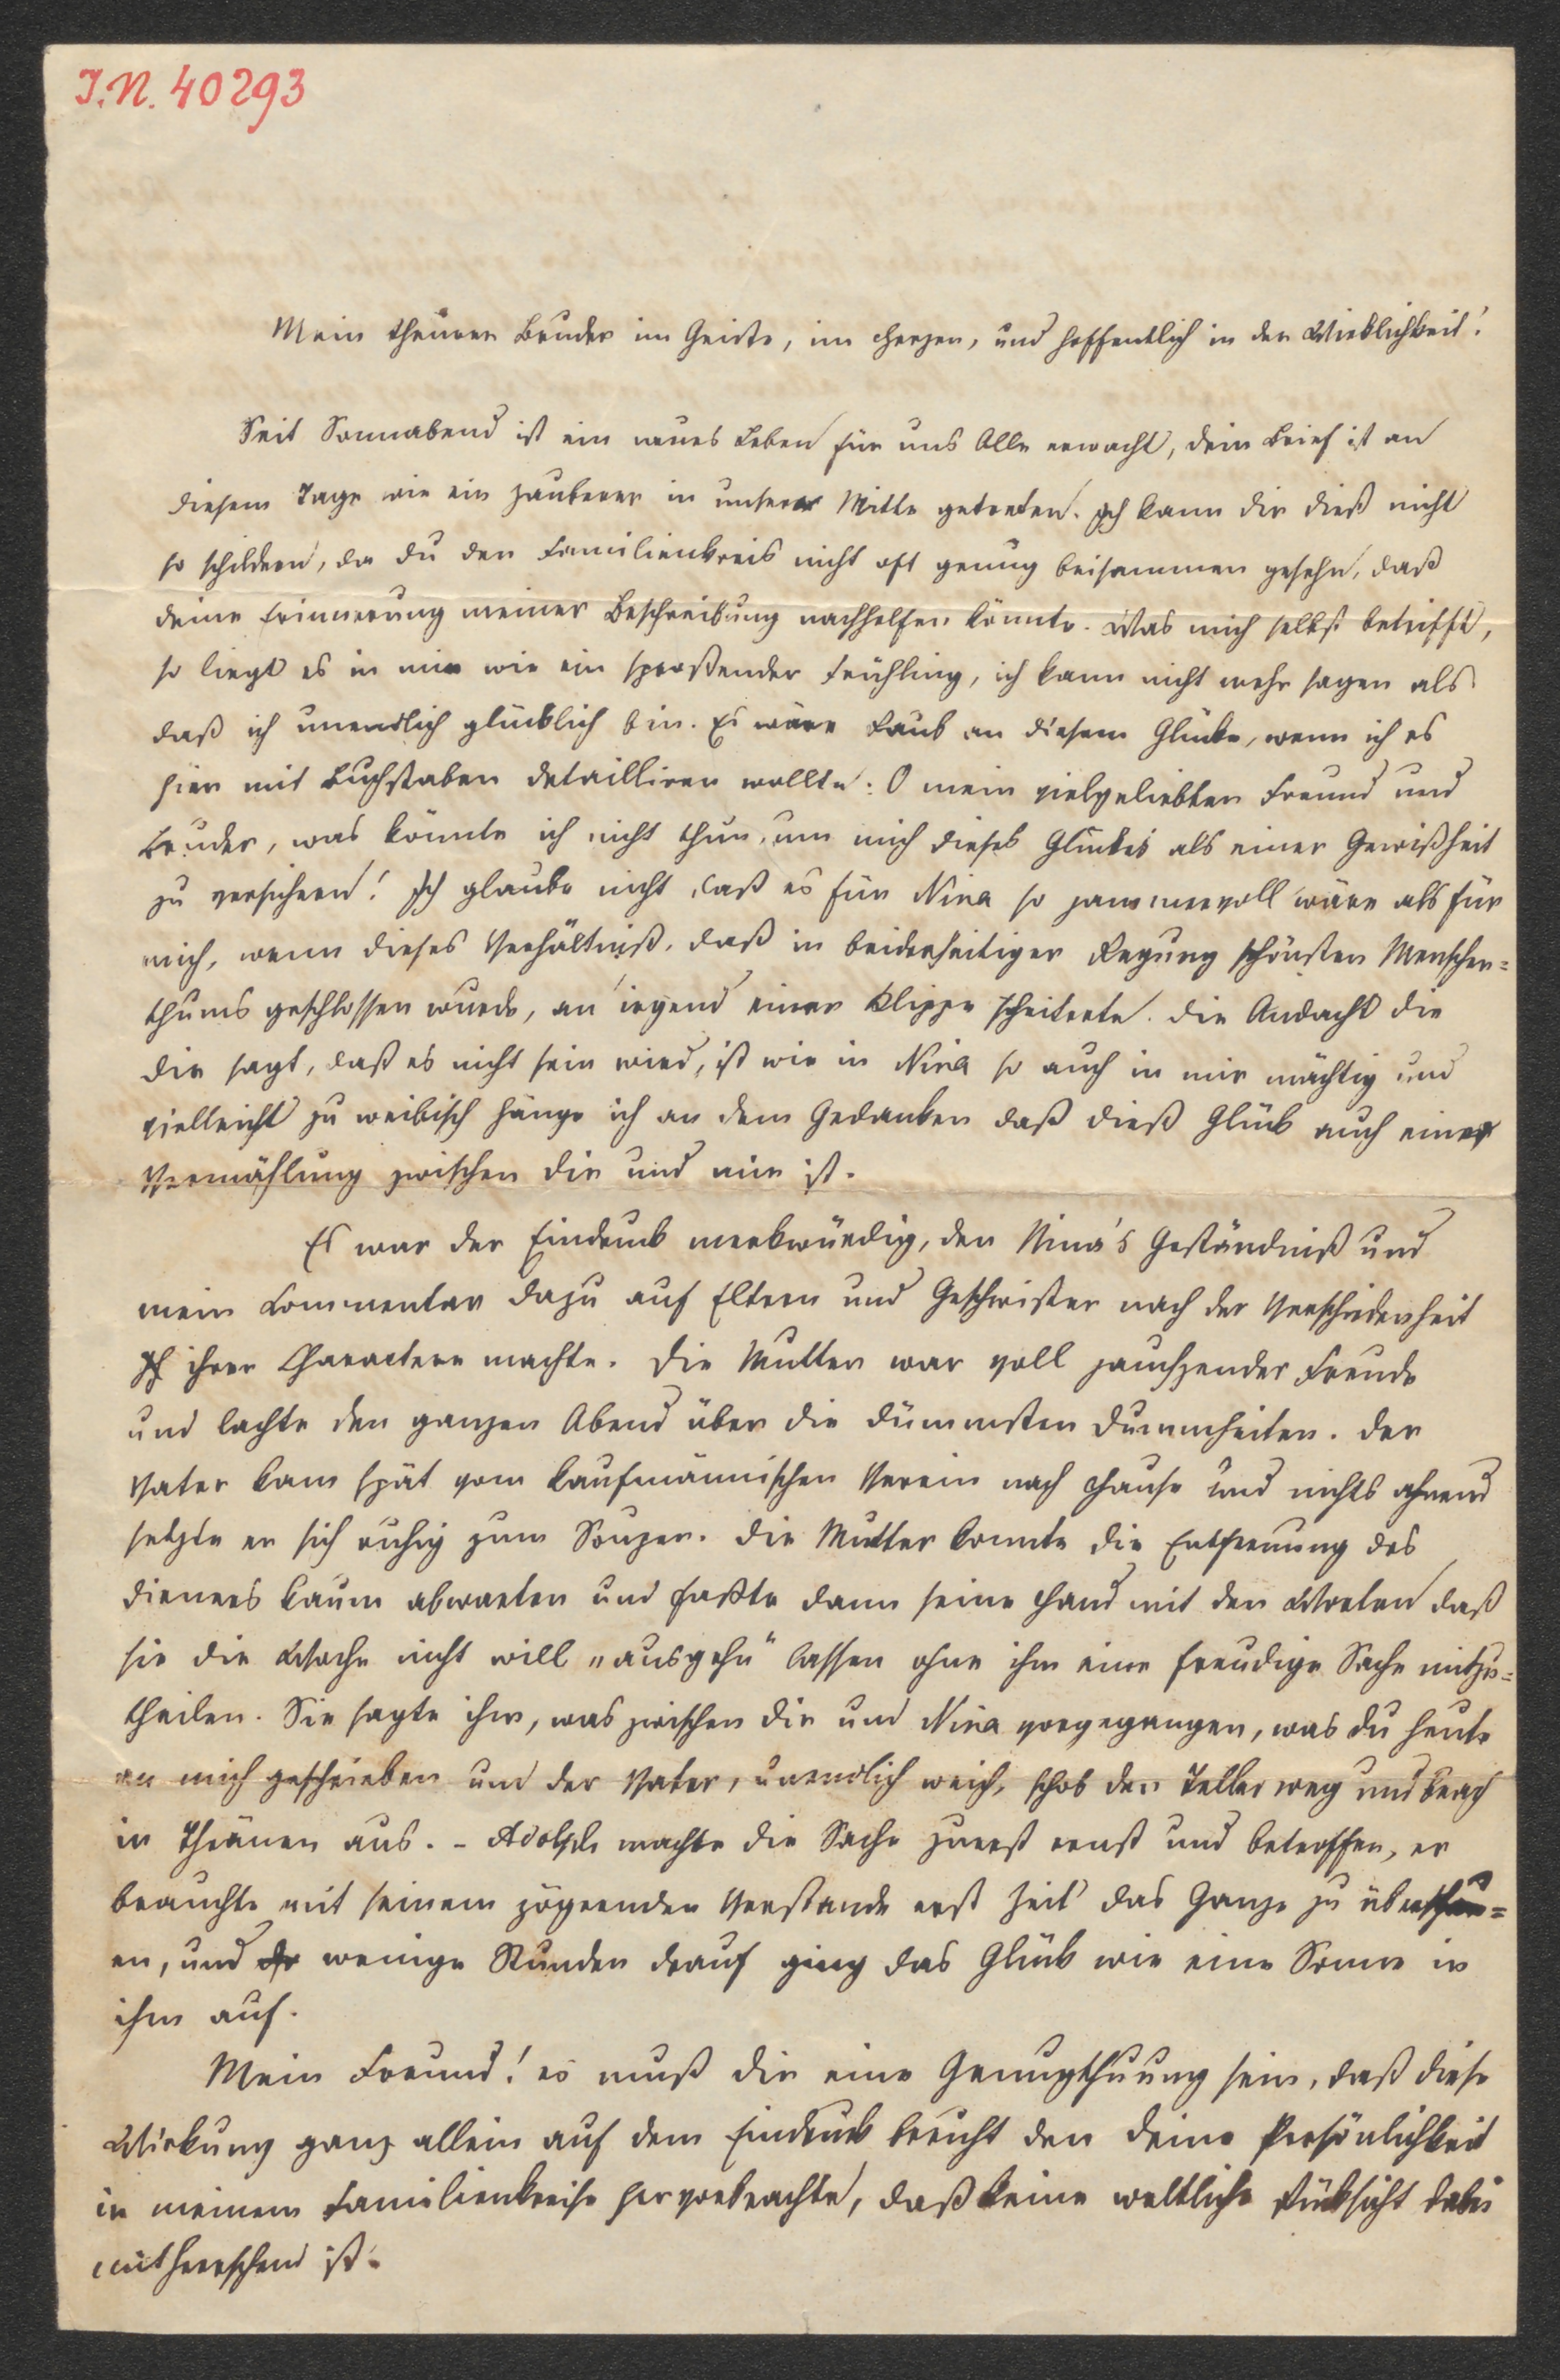 J.N. 40293
Mein theurer Bruder im Geiste, im Herzen, und hoffentlich in der Wirklichkeit!
Seit Sonnabend ist ein neues Leben für uns Alle erwacht, dein Brief ist an
diesem Tage wie ein Zauberer in unsere Mitte getreten. Ich kann dir dieß nicht
so schildern, da du den Familienkreis nicht oft genug beisammen gesehn, daß
deine Erinnerung meiner Beschreibung nachhelfen könnte. Was mich selbst betrifft,
so liegt es in mir wie ein sproßender Frühling, ich kann nicht mehr sagen als
daß ich unendlich glücklich bin. Es wäre Raub an diesem Glücke, wenn ich es
hier mit Buchstaben detailliren wollte. O mein vielgeliebter Freund und
Bruder, was könnte ich nicht thun, um mich dieses Glückes als einer Gewißheit
zu versichern! Ich glaube nicht, daß es für Nina so jammervoll wäre als für
mich, wenn dieses Verhältniß, daß in beiderseitiger Regung schönsten Menschen=
thums geschlossen wurde, an irgend einer Klippe scheiterte. Die Andacht die
dir sagt, daß es nicht sein wird, ist wie in Nina so auch in mir mächtig und
vielleicht zu weibisch hänge ich an dem Gedanken daß dieß Glück auch eine
Vermählung zwischen dir und mir ist.
Es war der Eindruck merkwürdig, den Nina's Geständniß und
mein Commentar dazu auf Eltern und Geschwister nach der Verschiedenheit
ihrer Charactere machte. Die Mutter war voll jauchzender Freude
und lachte den ganzen Abend über die dümmsten Dummheiten. Der
Vater kam spät vom kaufmännischen Verein nach Hause und nichts ahnend
setzte er sich ruhig zum Souper. Die Mutter konnte die Entfernung des
Dieners kaum abwarten und faßte dann seine Hand mit den Worten daß
sie die Woche nicht will „ausgehn" lassen ohne ihm eine freudige Sache mitzu=
theilen. Sie sagte ihm, was zwischen dir und Nina vorgegangen, was du heute
an mich geschrieben und der Vater, unendlich weich, schob den Teller weg und brach
in Thränen aus. - Adolph machte die Sache zuerst ernst und betroffen, er
brauchte mit seinem zögernden Verstande erst Zeit das Ganze zu überschau=
en, und wenige Stunden drauf ging das Glück wie eine Sonne in
ihm auf.
Mein Freund! es muß dir eine Genugthuung sein, daß diese
Wirkung ganz allein auf dem Eindruck beruht den deine Persönlichkeit
in meinem Familienkreise hervorbrachte, daß keine weltliche Rücksicht dabei
mitherrschend ist.